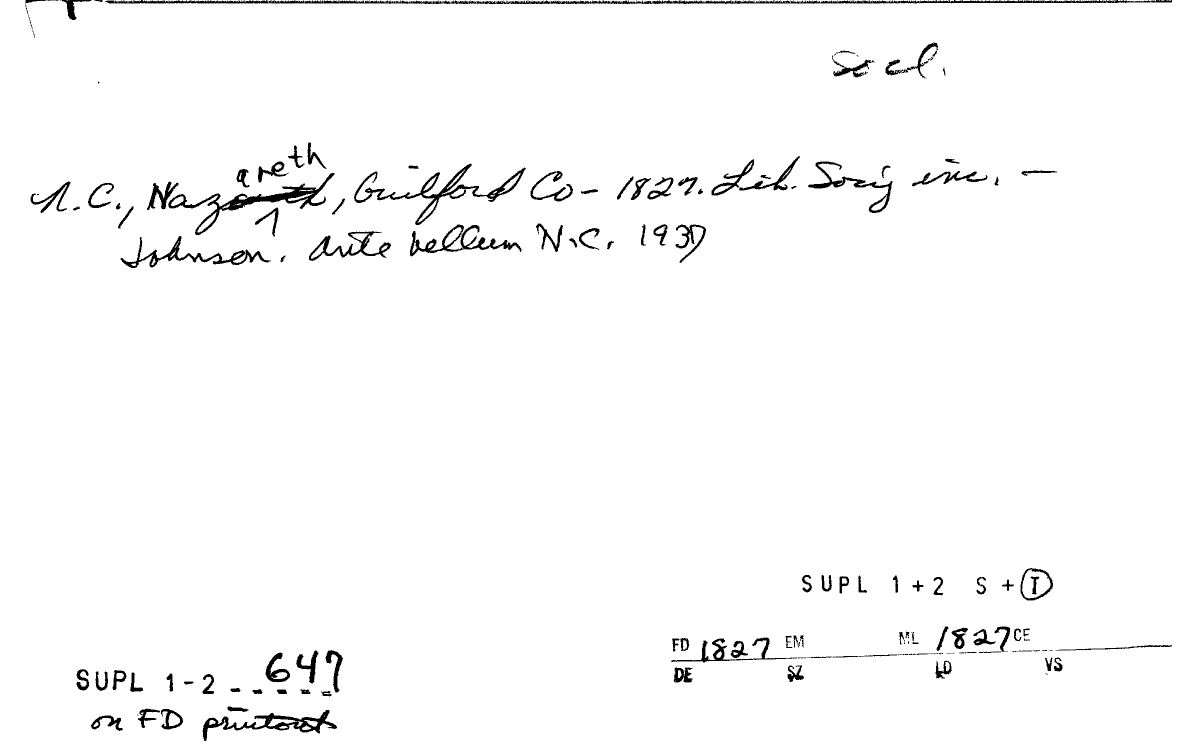 Socl.
N.C., Nazareth, Guilford Co - 1827. Lib. Socy inc. -
Johnson. Ante bellum N.C. 1937
SUPL 1+2 S + I
FD 1827 EM ML 1827 CE
DE SZ LD VS
SUPL 1-2 647
on FD printout